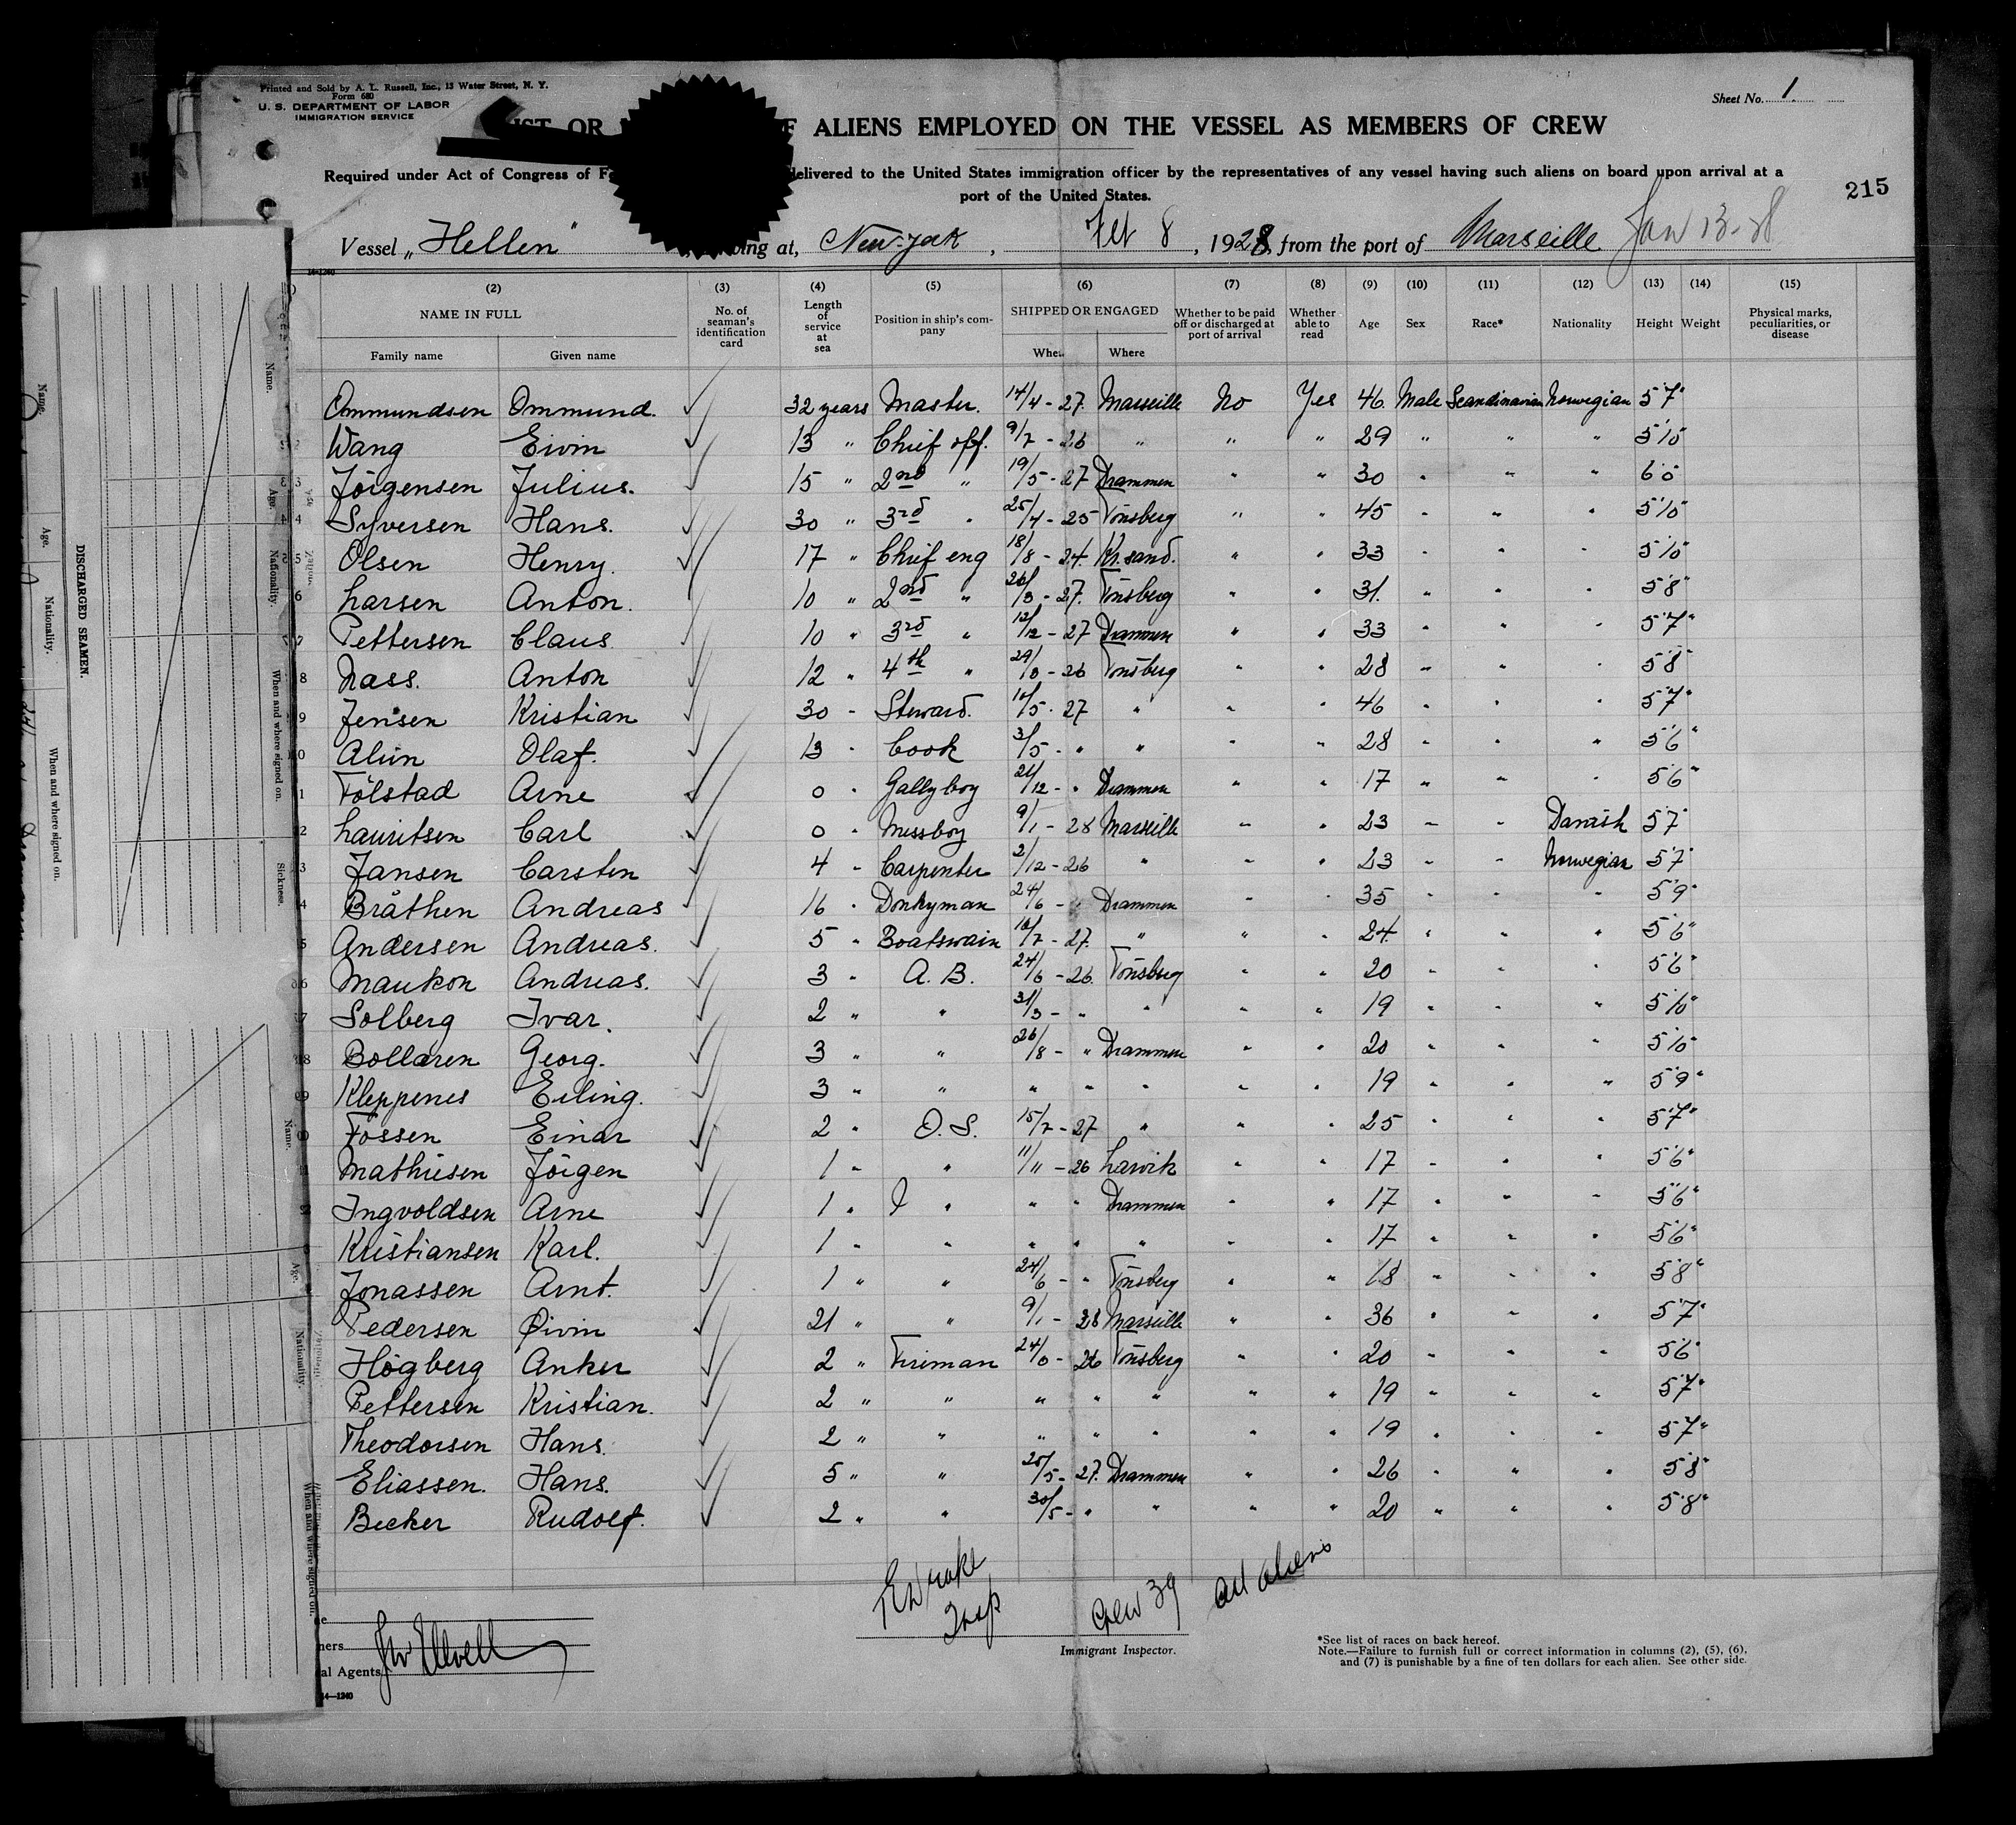 Printed and Sold by A. L. Russell, Inc., 13 Water Street, N. Y.
Form 680
U. S. DEPARTMENT OF LABOR
IMMIGRATION SERVICE
Sheet No. 1
OR
ALIENS EMPLOYED ON THE VESSEL AS MEMBERS OF CREW
Required under Act of Congress of
delivered to the United States immigration officer by the representatives of any vessel having such aliens on board upon arrival at a
port of the United States.
215
Vessel „Hellen" at, New-York, Feb 8, 1928, from the port of Marseille Jan 13-28
14-1240
(2) (3) (4) (5) (6) (7) (8) (9) (10) (11) (12) (13) (14) (15)
NAME IN FULL No. of seaman's identification card Length of service at sea Position in ship's company SHIPPED OR ENGAGED Whether to be paid off or discharged at port of arrival Whether able to read Age Sex Race* Nationality Height Weight Physical marks, peculiarities, or disease
Family name Given name Where
Ommundsen Ommund. 32 years Master. 14/4 - 27. Marseille No Yes 46. Male Scandinavian Norwegian 5'7"
Wang Eivin 13 " Chief off. 9/7 - 26 " " " 29 " " " 5'10"
3 Jörgensen Julius. 15 " 2nd " 19/5 - 27 Drammen " " 30 " " " 6'0"
4 Syversen Hans. 30 " 3rd " 25/4 - 25 Tönsberg " " 45 " " " 5'10"
5 Olsen Henry. 17 " Chief eng 18/8 - 24. Kr.sand. " " 33 " " " 5'10"
6 Larsen Anton. 10 " 2nd " - 27. Tönsberg " " 31. " " " 5'8"
7 Pettersen Claus 10 " 3rd " 12/12 - 27 Drammen " " 33 " " " 5'7"
8 Nass. Anton 12 " 4th " - 26 Tönsberg " " 28 " " " 5'8"
9 Jensen Kristian 30 " Steward. 10/5 - 27 " " " 46 " " " 5'7"
Olaf. 13 " Cook 3/5 - " " " " 28 " " " 5'6"
Fölstad Arne 0 " Gallyboy /12 - " Drammen " " 17 " " " 5'6"
Lauritsen Carl 0 " Messboy 9/1 - 28 Marseille " " 23 " " Danish 5'7"
Jansen Carsten 4 " Carpenter 2/12 - 26 " " " 23 " " Norwegian 5'7"
Bråthen Andreas 16 " Donkyman 24/6 - " Drammen " " 35 " " " 5'9"
Andersen Andreas. 5 " Boatswain /7 - 27. " " " 24. " " " 5'6"
Maukon Andreas. 3 " A. B. 24/6 - 26. Tönsberg " " 20 " " " 5'6"
Solberg Ivar. 2 " " 31/3 - " " " " 19 " " " 5'10"
Bollæren Georg. 3 " " 26/8 - " Drammen " " 20 " " " 5'10"
Kleppenes Erling. 3 " " " " " " " 19 " " " 5'9"
Fossen Einar 2 " O. S. 15/7 - 27 " " " 25 " " " 5'7"
Mathiesen Jörgen 1 " " 11/11 - 26 Larvik " " 17 " " " 5'6"
Ingvoldsen Arne 1 " " " " Drammen " " 17 " " " 5'6"
Kristiansen Karl. 1 " " " " " " " 17 " " " 5'6"
Jonassen Arnt. 1 " " 24/6 - " Tönsberg " " 18 " " " 5'8"
Pedersen Øivin 21 " " 9/1 - 28 Marseille " " 36 " " " 5'7"
Högberg Anker 2 " Fireman - 26 Tönsberg " " 20 " " " 5'6"
Pettersen Kristian. 2 " " " " " " " 19 " " " 5'7"
Theodorsen Hans. 2 " " " " " " " 19 " " " 5'7"
Eliassen. Hans. 5 " " 25/5 - 27. Drammen " " 26 " " " 5'8"
Becker Rudolf. 2 " " 30/5 - " " " " 20 " " " 5'8"
Insp Crew 39 all aliens
Immigrant Inspector.
Agents
14—1240
*See list of races on back hereof.
Note.—Failure to furnish full or correct information in columns (2), (5), (6),
and (7) is punishable by a fine of ten dollars for each alien. See other side.
DISCHARGED SEAMEN.
Name.
Age.
Nationality.
When and where signed on.
Name.
Age.
Nationality.
When and where signed on.
Sickness.
Name.
Age.
Nationality.
When and where signed on.